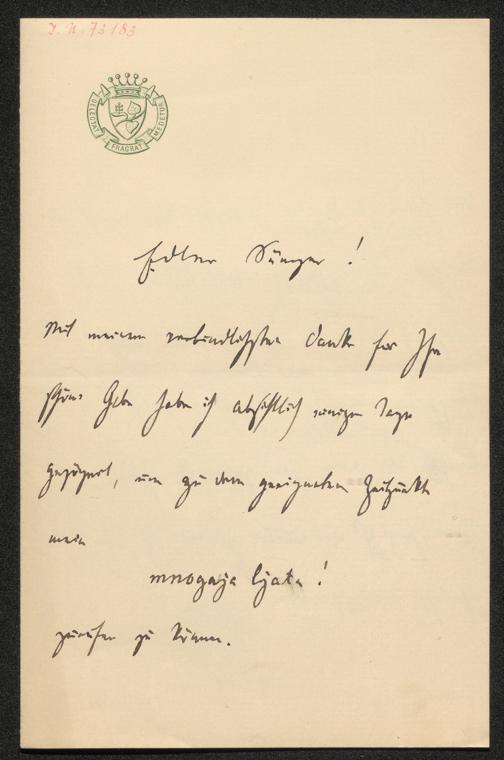 I. N. 73183
DELECTAT FRAGRAT MEDETUR
Edler Sänger!
Mit meinem verbindlichsten Danke für Ihre
schöne Gabe habe ich absichtlich einige Tage
gezögert, um zu dem geeigneten Zeitpunkte
mein
mnogaja ljeta!
zurufen zu können.